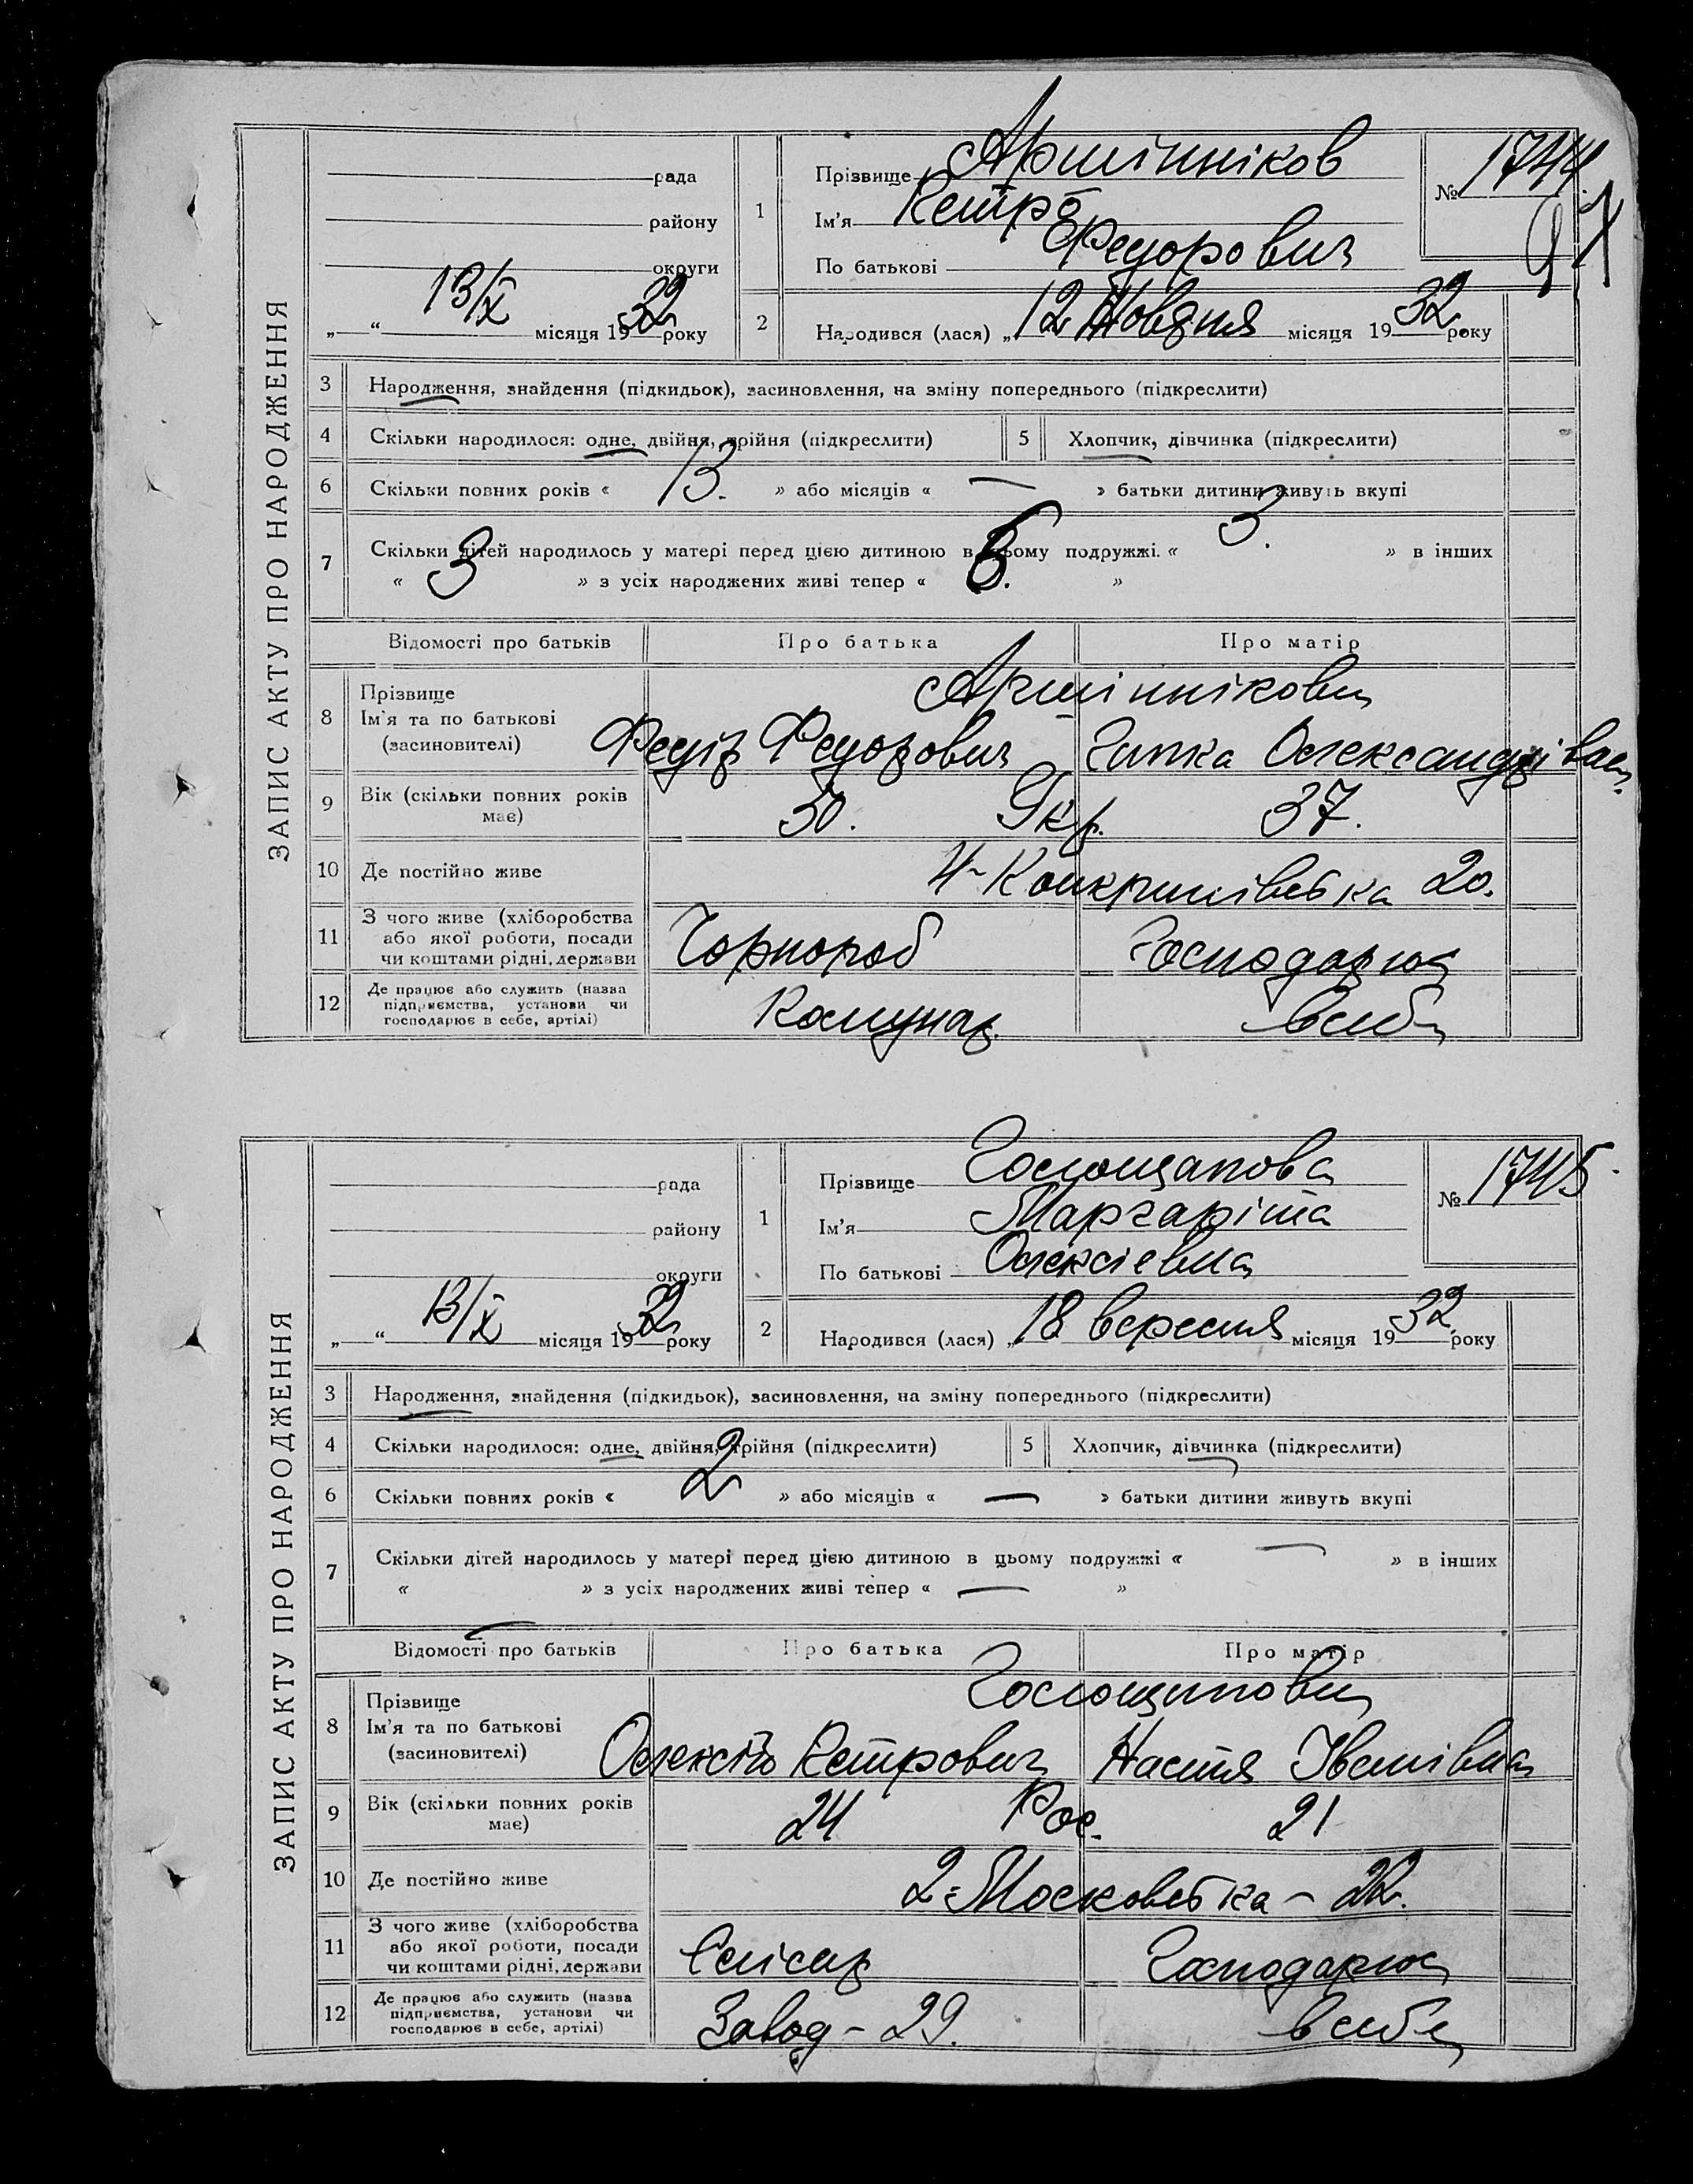 ЗАПИС АКТУ ПРО НАРОДЖЕННЯ
рада
району
округи
„ “ 13/X місяця 1932 року
1
Прізвище Аршінніков
Ім'я Петро
По батькові Федорович
№ 1744.
2
Народився (лася) „12 Жовдня місяця 1932 року
3 Народження, знайдення (підкидьок), засиновлення, на зміну попереднього (підкреслити)
4 Скільки народилося: одне, двійня, трійня (підкреслити) 5 Хлопчик, дівчинка (підкреслити)
6 Скільки повних років « 13. » або місяців « — » батьки дитини живуть вкупі
7 Скільки дітей народилось у матері перед цією дитиною в цьому подружжі. « 3. » в інших
« 3 » з усіх народжених живі тепер « 6. »
Відомості про батьків Про батька Про матір
8 Прізвище Ім'я та по батькові (засиновителі)
Аршіннікови
Федір Федорович Ганка Олександрівна.
9 Вік (скільки повних років має) 50. Укр. 37.
10 Де постійно живе 20.
11 З чого живе (хліборобства або якої роботи, посади чи коштами рідні, держави Чорнороб Господарює
12 Де працює або служить (назва підприємства, установи чи господарює в себе, артілі) Комунар. всебе
ЗАПИС АКТУ ПРО НАРОДЖЕННЯ
рада
району
округи
„ “ 13/X місяця 1932 року
1
Прізвище Голощапова
Ім'я Маргаріта
По батькові Олексієвна
№ 1745.
2
Народився (лася) „18 вересня місяця 1932 року
3 Народження, знайдення (підкидьок), засиновлення, на зміну попереднього (підкреслити)
4 Скільки народилося: одне, двійня, трійня (підкреслити) 5 Хлопчик, дівчинка (підкреслити)
6 Скільки повних років « 2 » або місяців « — » батьки дитини живуть вкупі
7 Скільки дітей народилось у матері перед цією дитиною в цьому подружжі « — » в інших
« — » з усіх народжених живі тепер « — »
Відомості про батьків Про батька Про матір
8 Прізвище Ім'я та по батькові (засиновителі)
Голощапови
Олексій Петрович Настя Іванівна
9 Вік (скільки повних років має) 24 Рос. 21
10 Де постійно живе 2-Московська - 22.
11 З чого живе (хліборобства або якої роботи, посади чи коштами рідні, держави Слісар Господарює
12 Де працює або служить (назва підприємства, установи чи господарює в себе, артілі) Завод - 29. всебе